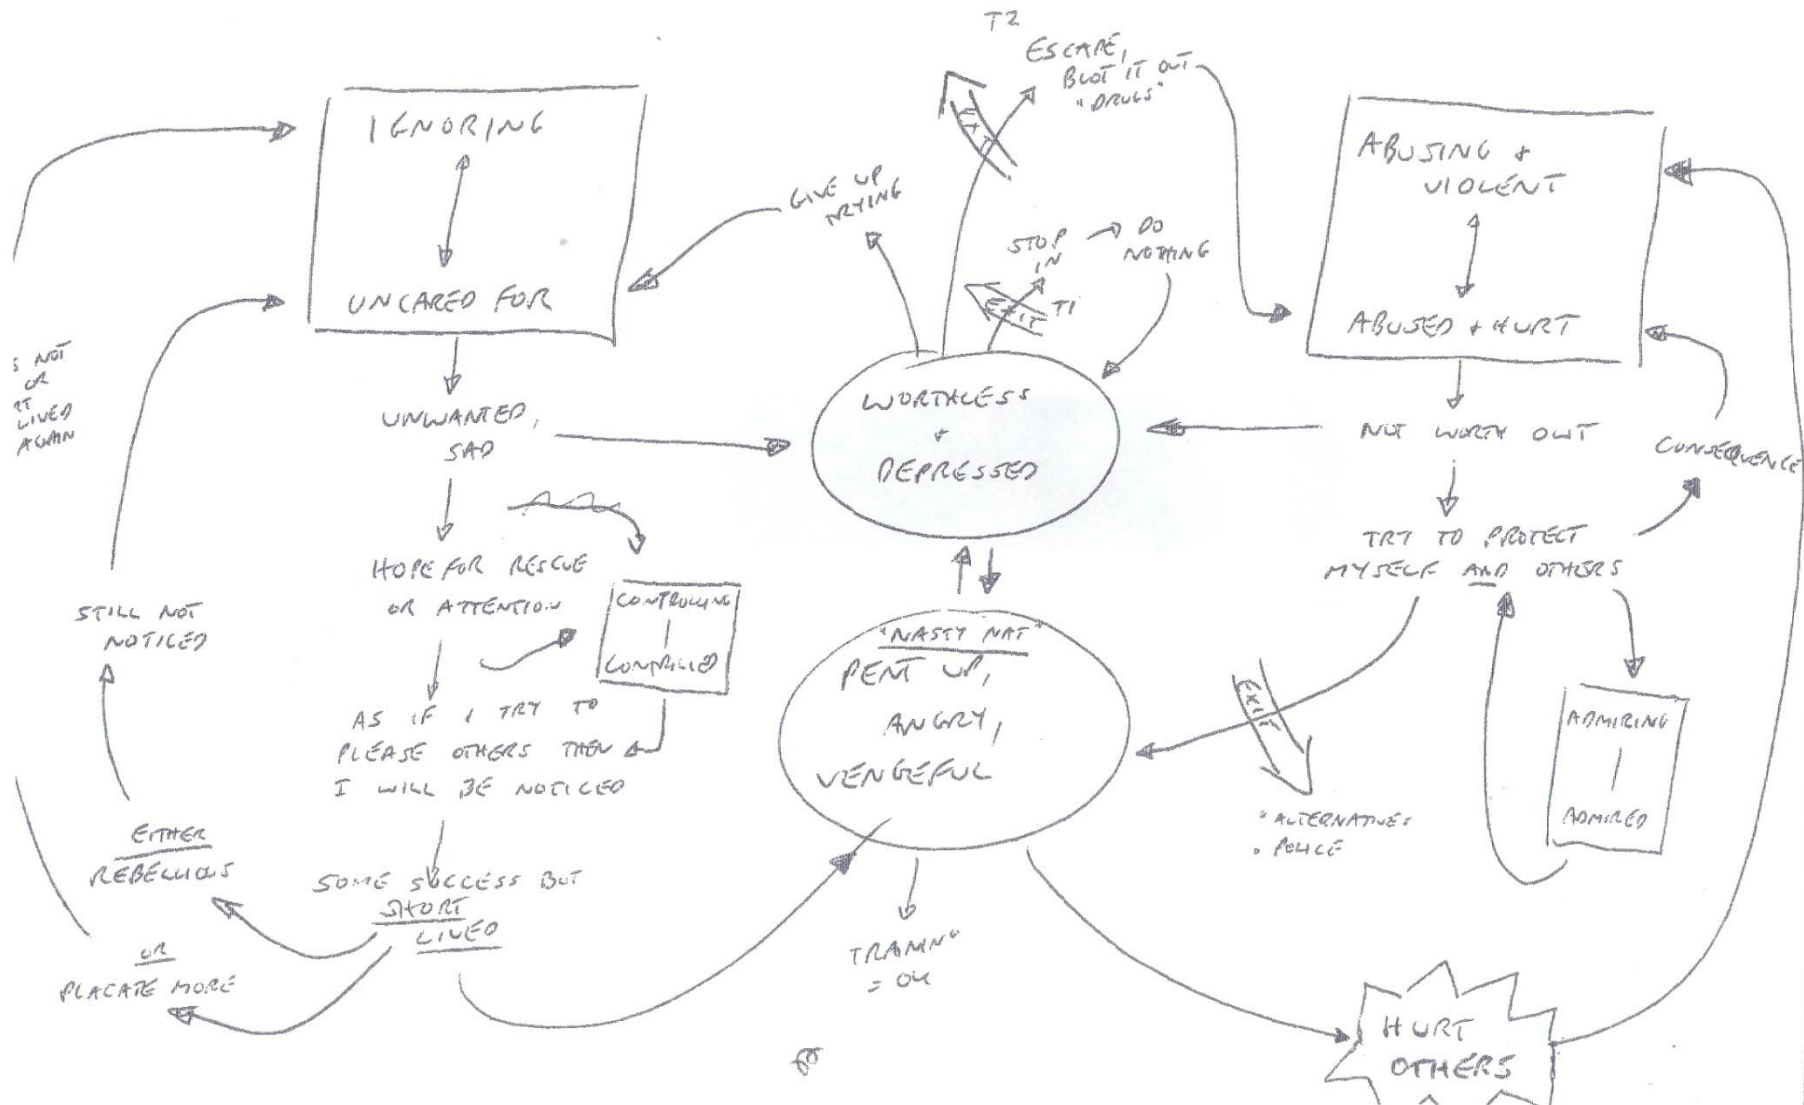 T2
ESCAPE,
BLOT IT OUT
"DRUGS"
EXIT
IGNORING
UNCARED FOR
GIVE UP
TRYING
STOP
IN
DO
NOTHING
EXIT
T1
ABUSING +
VIOLENT
ABUSED + HURT
S NOT
OR
RT
LIVED
AGAIN
UNWANTED,
SAD
WORTHLESS
+
DEPRESSED
NOT WORTH OWT
CONSEQUENCE
HOPE FOR RESCUE
OR ATTENTION
CONTROLLING
CONTROLLED
TRY TO PROTECT
MYSELF AND OTHERS
STILL NOT
NOTICED
"NASTY NAT"
PENT UP,
ANGRY,
VENGEFUL
EXIT
ADMIRING
ADMIRED
AS IF I TRY TO
PLEASE OTHERS THEN
I WILL BE NOTICED
"ALTERNATIVES
. POLICE
EITHER
REBELLIOUS
SOME SUCCESS BUT
SHORT
LIVED
OR
PLACATE MORE
= OK
HURT
OTHERS